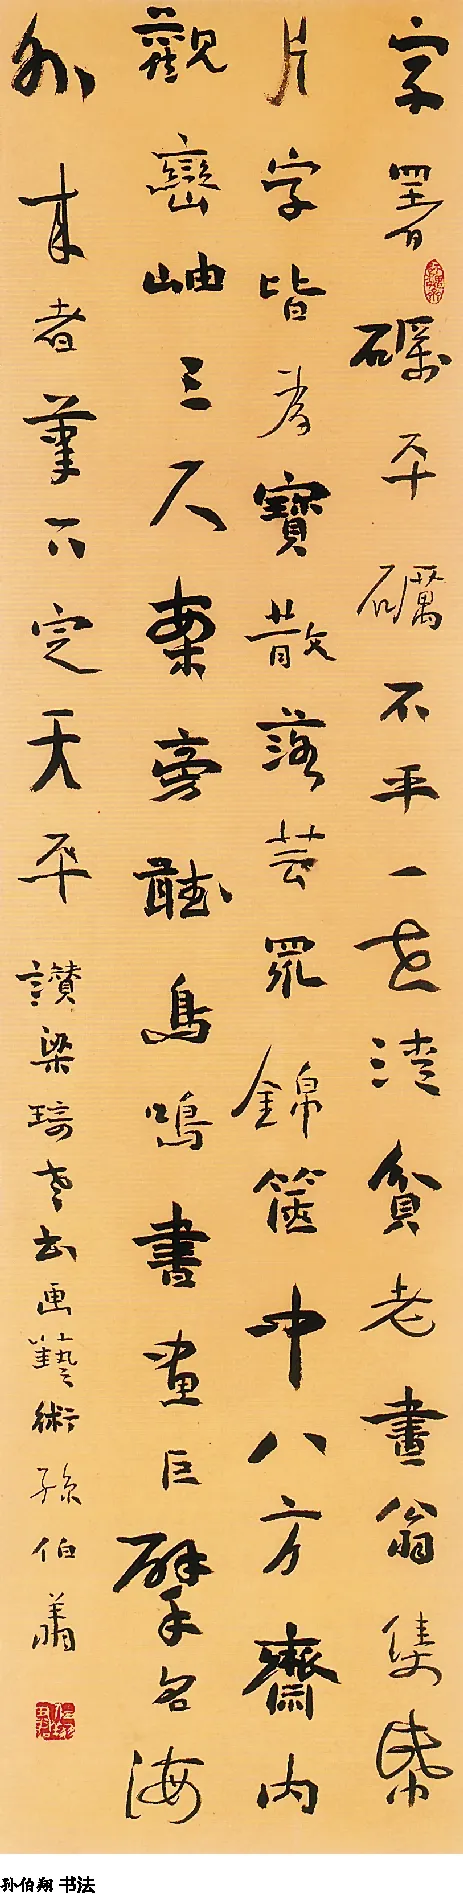 字署礫平礪不平一世清貧老畫翁隻帋
片字皆為寶散落芸眾錦篋中八方齋内
觀巒岫三人栗旁聽鳥鳴書畫巨擘名海
外来者筆下定天平
讚梁琦老书画藝術孫伯翔
孙伯翔 书法